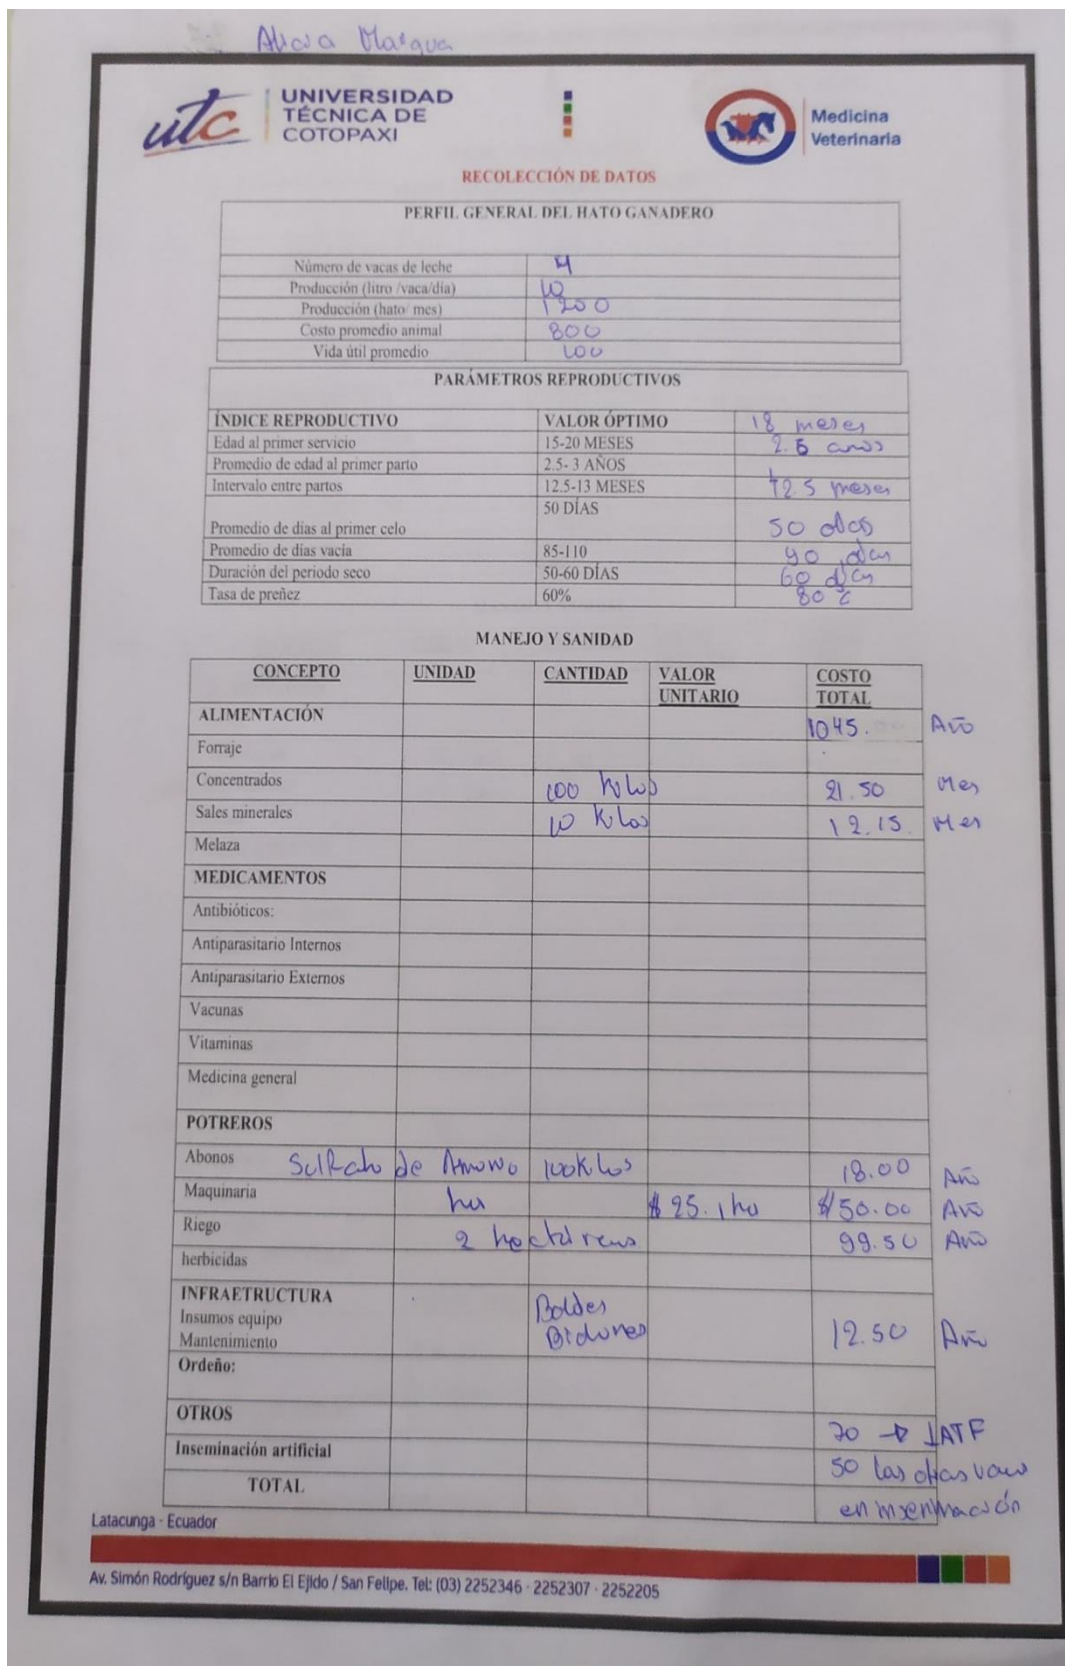 Alicia
utc UNIVERSIDAD TÉCNICA DE COTOPAXI
Medicina Veterinaria
RECOLECCIÓN DE DATOS
PERFIL GENERAL DEL HATO GANADERO
Número de vacas de leche 4
Producción (litro /vaca/día) 10
Producción (hato/ mes) 1200
Costo promedio animal 800
Vida útil promedio 100
PARÁMETROS REPRODUCTIVOS
ÍNDICE REPRODUCTIVO VALOR ÓPTIMO 18 meses
Edad al primer servicio 15-20 MESES 2.5 anos
Promedio de edad al primer parto 2.5- 3 AÑOS
Intervalo entre partos 12.5-13 MESES 12.5 meses
50 DÍAS
Promedio de días al primer celo 50 dias
Promedio de días vacía 85-110 90 dias
Duración del periodo seco 50-60 DÍAS 60 dias
Tasa de preñez 60% 80
MANEJO Y SANIDAD
CONCEPTO UNIDAD CANTIDAD VALOR UNITARIO COSTO TOTAL
ALIMENTACIÓN 1045.00 Año
Forraje
Concentrados 100 Kilos 21.50 Mes
Sales minerales 10 Kilos 12.15. Mes
Melaza
MEDICAMENTOS
Antibióticos:
Antiparasitario Internos
Antiparasitario Externos
Vacunas
Vitaminas
Medicina general
POTREROS
Abonos Sulfato de Amonio 100Kilos 18.00 Año
Maquinaria ha $25. 1 ha $/50.00 Año
Riego 2 hectareas 99.50 Año
herbicidas
INFRAETRUCTURA
Insumos equipo Baldes
Mantenimiento Bidones 12.50 Año
Ordeño:
OTROS 70 → IATF
Inseminación artificial 50 las otras vacas
TOTAL en inseminación
Latacunga - Ecuador
Av. Simón Rodríguez s/n Barrio El Ejido / San Felipe. Tel: (03) 2252346 - 2252307 - 2252205